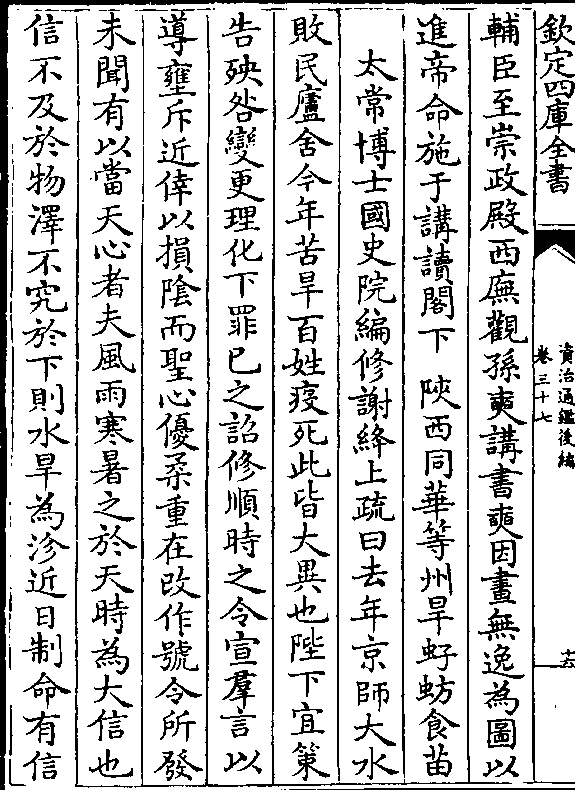 欽定四庫全書
資治通鑑後編
卷三十七
十六
輔臣至崇政殿西廡觀孫奭講書奭因畫無逸為圖以
進帝命施于講讀閣下　陝西同華等州旱虸蚄食苗
太常博士國史院編修謝絳上疏曰去年京師大水
敗民廬舍今年苦旱百姓疫死此皆大異也陛下宜策
告殃咎變更理化下罪已之詔修順時之令宣羣言以
導壅斥近倖以損陰而聖心優柔重在改作號令所發
未聞有以當天心者夫風雨寒暑之於天時為大信也
信不及於物澤不究於下則水旱為沴近日制命有信